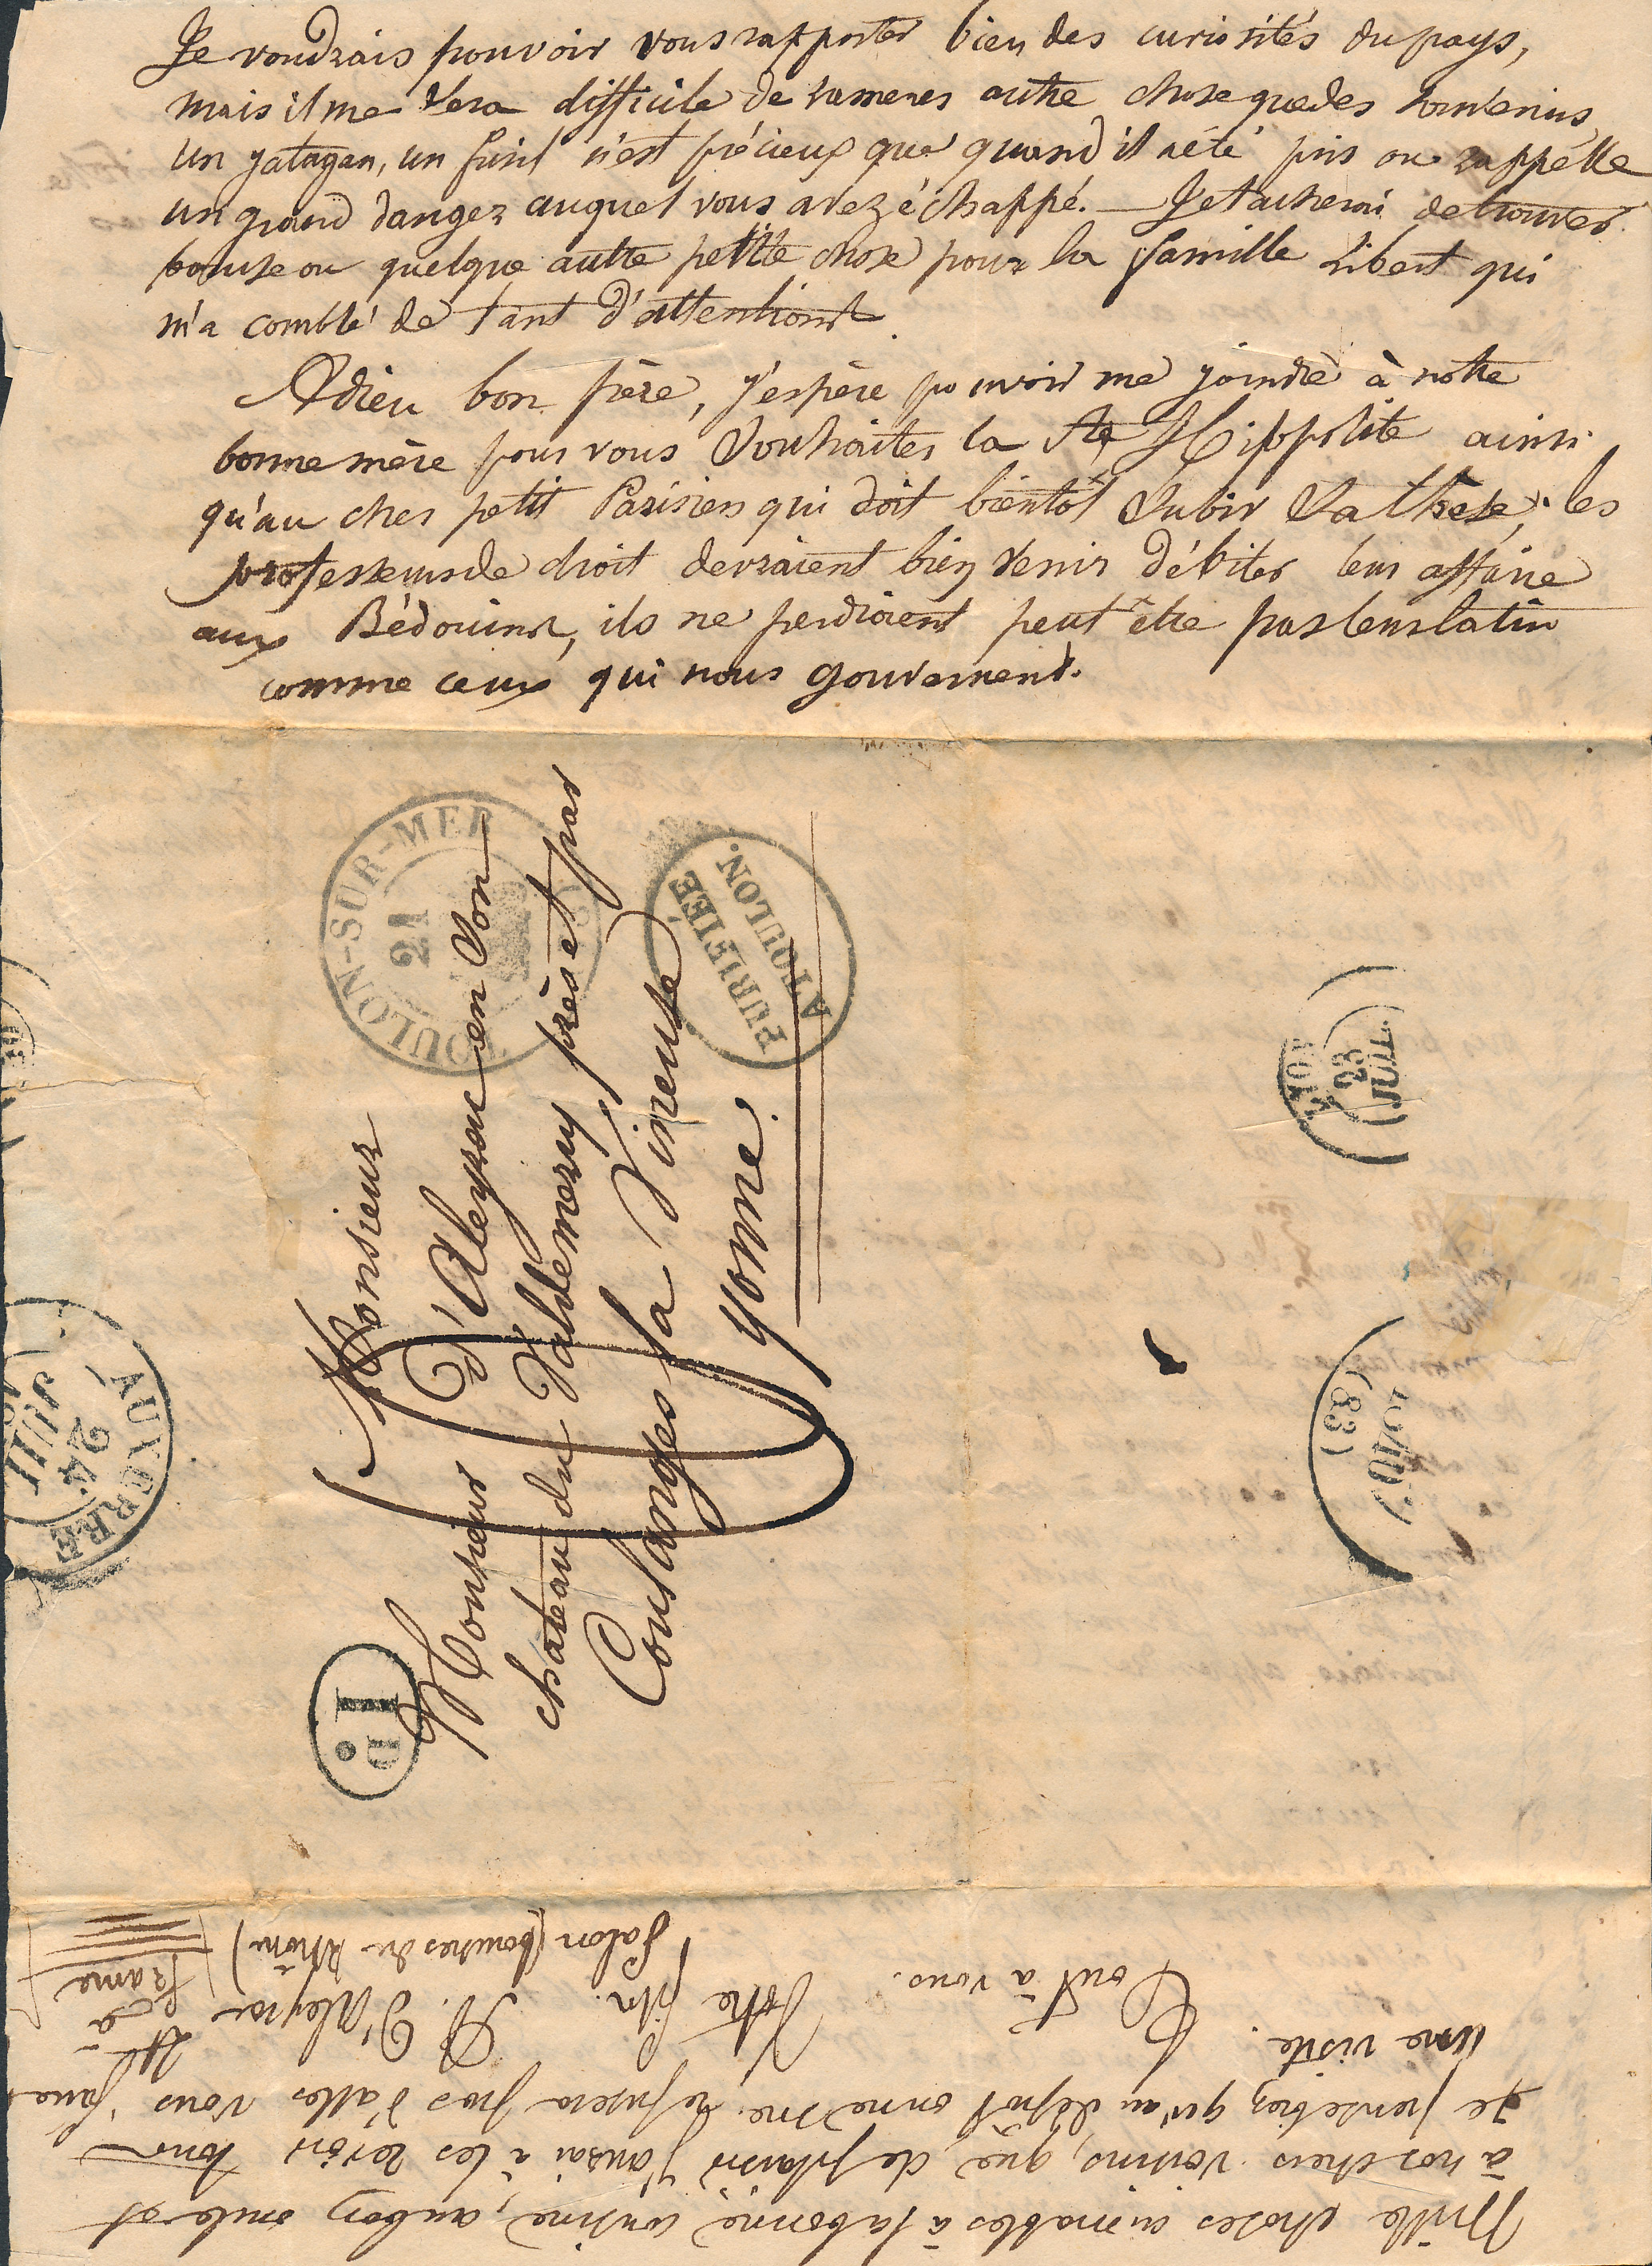 Je voudrais pouvoir vous rapporter bien des curiosités du pays,
mais il me sera difficile de ramener autre chose que des souvenirs
un yatagan, un fusil n'est précieux que quand il a été pris ou rappelle
un grand danger auquel vous avez échappé. — Je tacherai de trouver
bourse ou quelque autre petite chose pour la famille Libert qui
m'a comblé de tant d'attentions.
Adieu bon père, j'espère pouvoir me joindre à notre
bonne mère pour vous souhaiter la St Hippolite ainsi
qu'au cher petit Parisien qui doit bientôt subir sa thèse; les
professeurs de droit devraient bien venir débiter leur affaire
aux Bédouins, ils ne perdroient peut être pas leur latin
comme ceux qui nous gouvernent.
TOULON-SUR-MER
21
PURIFIÉE
A TOULON.
Monsieur
Monsieur d'Aleyrac en son
chateau du Valdemercy près et par
Coulanges la Vineuse
Yonne.
1D.
AUXERRE
24
JUIL
LYON
23
JUIL.
(83)
Mille choses aimables à la bonne cousine, au bon oncle et
à nos chers voisins, que de plaisir j'aurai à les revoir tous
Je pense bien qu'au dépôt on ne me refusera pas d'aller vous faire
une visite.
Tout à vous.
Votre fils.
A. d'Aleyrac
Salon (bouches du Rhône)